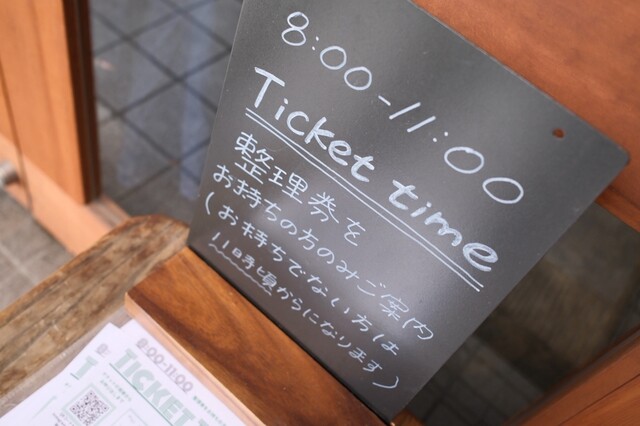 8:00-11:00
Ticket time
整理券を
お持ちの方のみご案内
(お持ちでない方は
11時頃からになります)
8:00-11:00
TICKET T